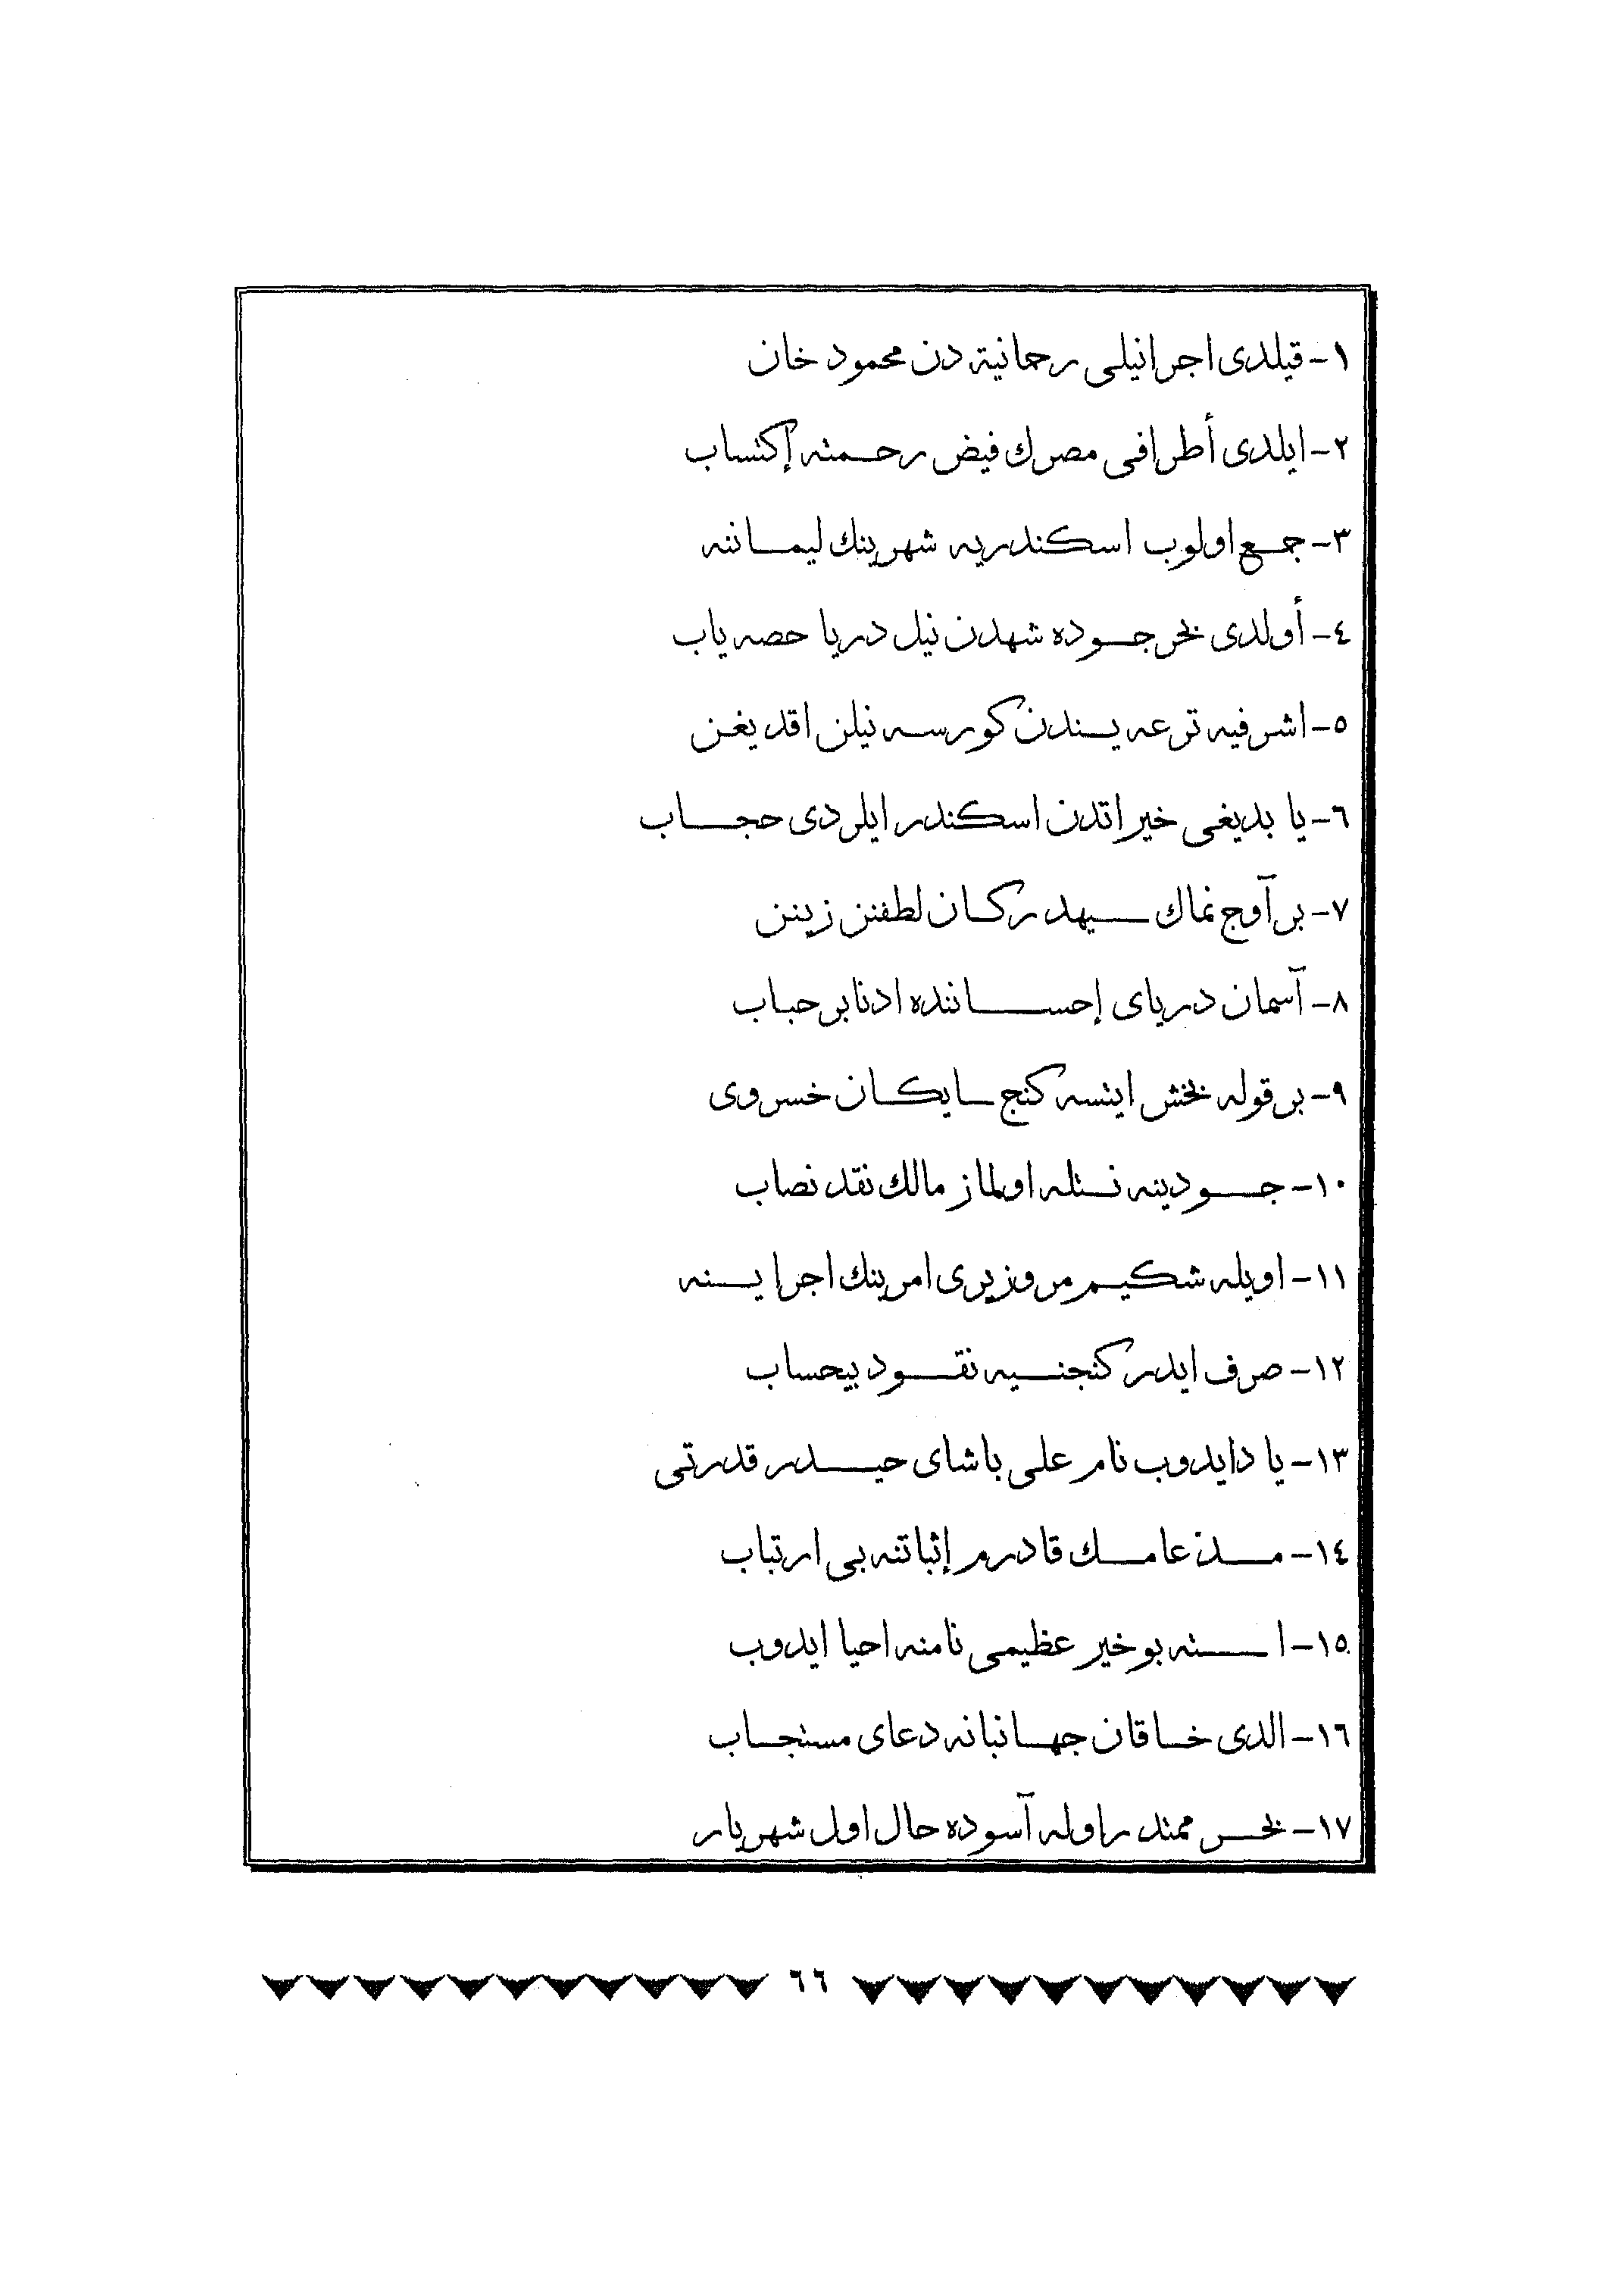 ١- قيلدى اجرانيلى رحمانية دن محمود خان
٢- ايلدى أطرافى مصرك فيض رحمته إكتساب
٣- جمع اولوب اسكندريه شهرينك ليماننه
٤- أولدى بحر جوده شهدن نيل دريا حصه ياب
٥- اشرفيه ترعه يسندن كورسه نيلن اقد يغن
٦- يا بديغى خيراتدن اسكندر ايلردى حجاب
٧- بر آوج نماك سيهدر كان لطفنن زينن
٨- آسمان درياى إحساننده ادنا بر حباب
٩- بر قوله بخش ايتسه كنج سايكان خسروى
١٠- جودينه نسله اولماز مالك نقد نصاب
١١- اويله شكيم مر وزيرى امرينك اجرا يسنه
١٢- صرف ايدر كنجنسيه نقود بيحساب
١٣- يا دايدوب نام على باشاى حيدر قدرتى
١٤- عامك قادرم إثباتنه بى ارتباب
١٥- استه بو خير عظيمى نامنه احيا ايدوب
١٦- الدى خاقان جهانبانه دعاى مستجاب
١٧- بحر ممتد راوله آسوده حال اول شهريار
٦٦